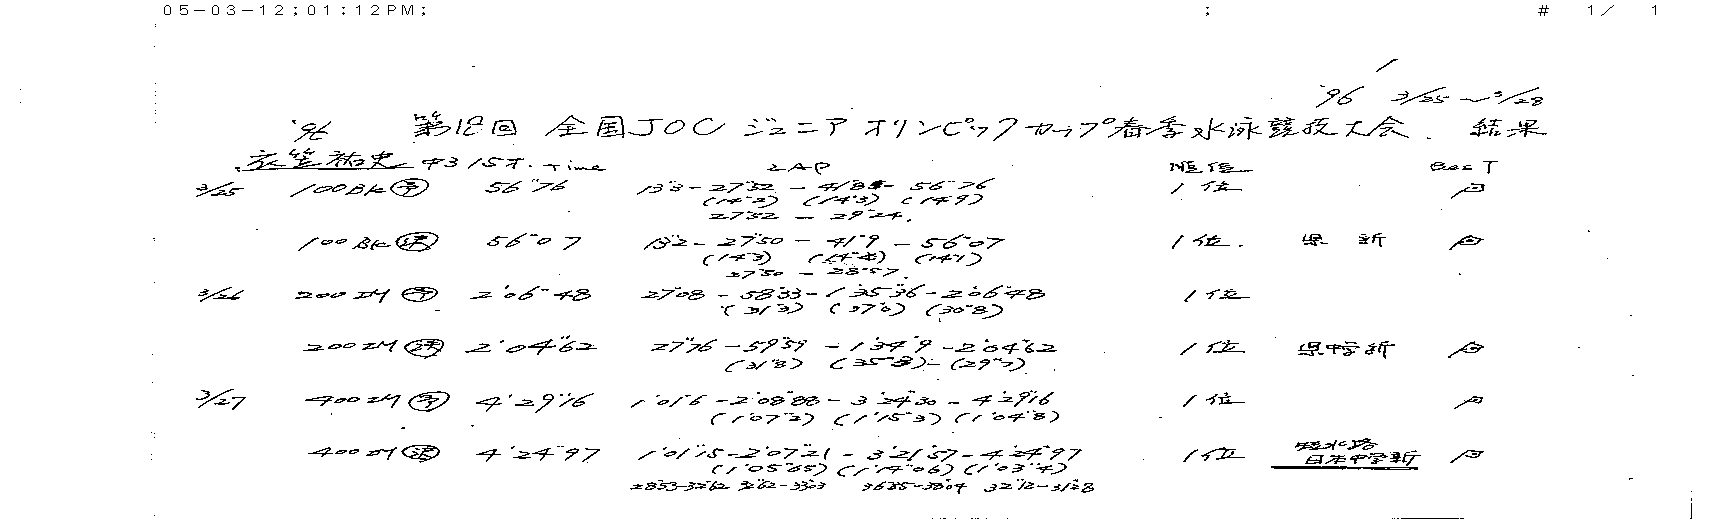 05-03-12;01:12PM; ; # 1/ 1
'96 3/25~3/28
'96 第18回 全国JOC ジュニア オリンピックカップ春季水泳競技大会. 結果
衣笠祐史 中3 15才. Time LAP 順位 Bes T
3/25 100BK㋵ 56"76 13"3-27"32-41"85-56"76 1位
(14"2) (14"3) (14"9)
27"32-29"24.
100BK 決 56"07 13"2-27"50-41"9-56"07 1位. 県 新
(14"3) (14"4) (14"1)
27"50-28"57.
3/26 200IM 予 2'06"48 27"08-58"33-1'35"36-2'06"48 1位
(31"3) (37"0) (30"8)
200IM 決 2'04"62 27"76-59"59-1'34"9-2'04"62 1位 県中学新
(31"8) (35"8)-(29"7)
3/27 400IM 予 4'29"16 1'01"6-2'08"88-3'24"30-4'29"16 1位
(1'07"2) (1'15"3) (1'04"8)
400IM 決 4'24"97 1'01"15-2'07"21-3'21"57-4'24"97 1位 短水路
(1'05"65) (1'14"06) (1'03"4) 日本中学新